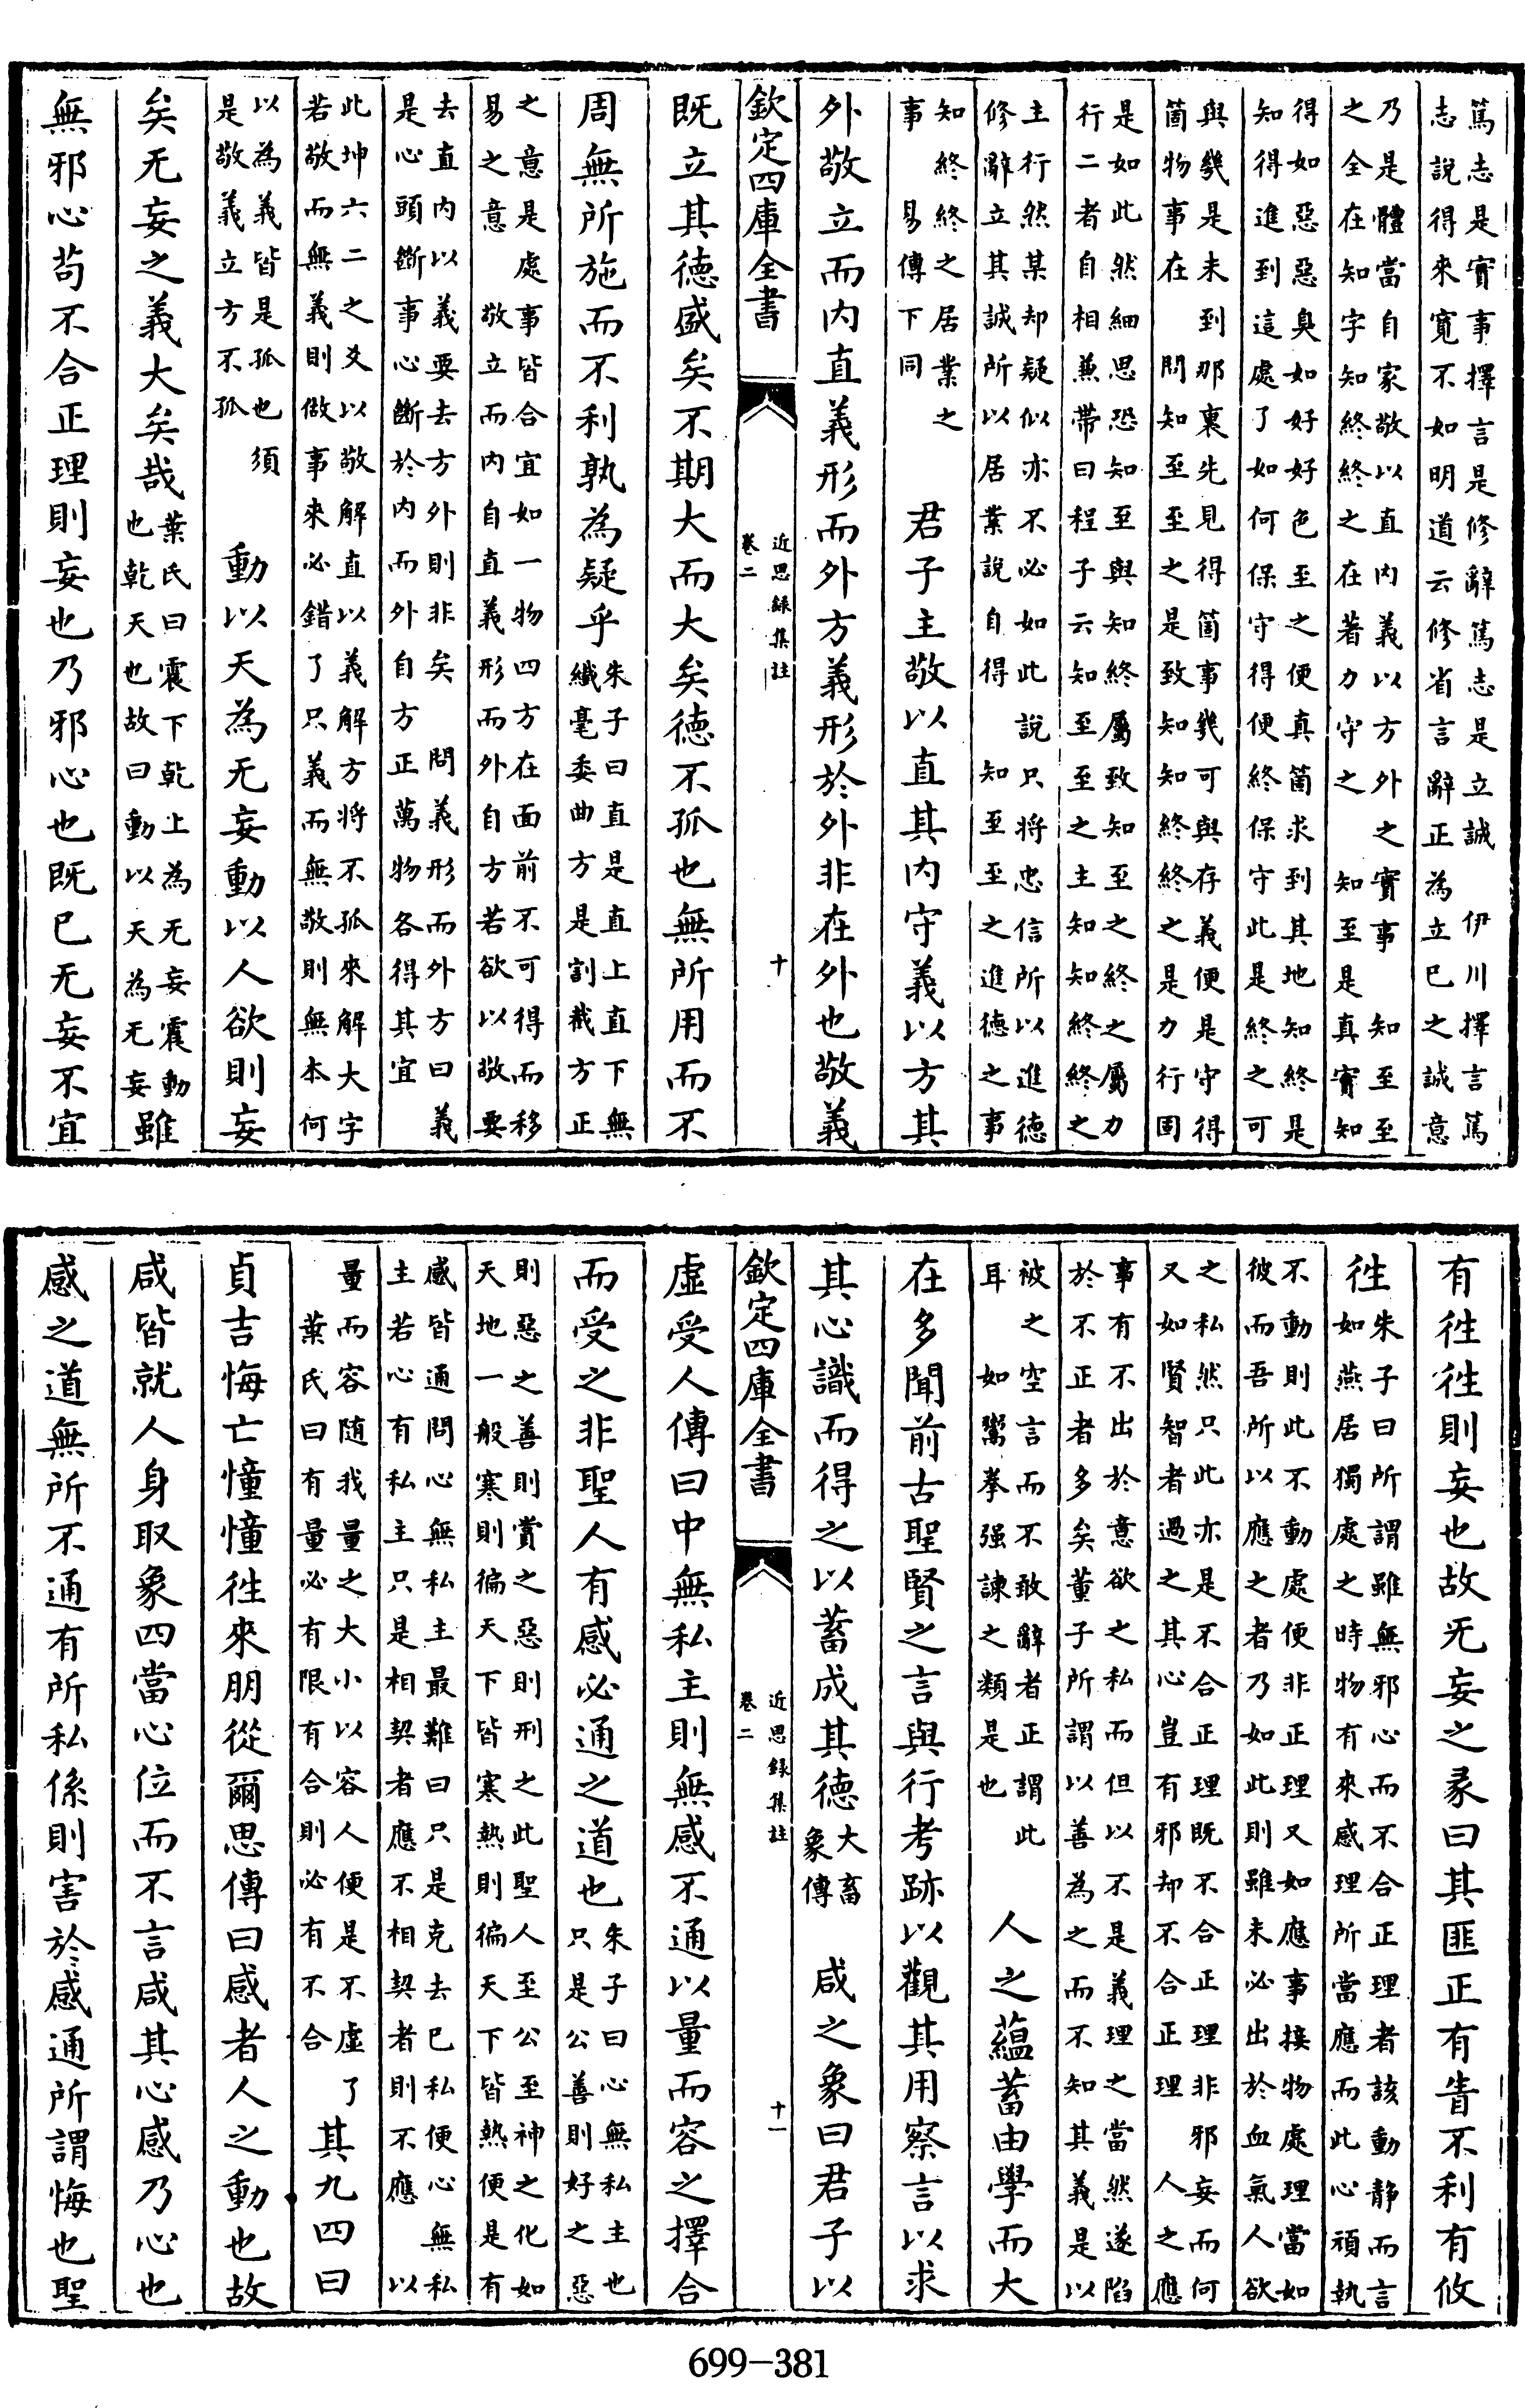 篤志是實事擇言是修辭篤志是立誠　伊川擇言篤
志說得來寛不如明道云修省言辭正為立已之誠意
乃是體當自家敬以直內義以方外之實事　知至至
之全在知字知終終之在著力守之　知至是真實知
得如惡惡臭如好好色至之便真箇求到其地知終是
知得進到這處了如何保守得便終保守此是終之可
與幾是未到那裏先見得箇事幾可與存義便是守得
箇物事在　問知至至之是致知知終終之是力行固
是如此然細思恐知至與知終屬致知至之終之屬力
行二者自相兼帶曰程子云知至至之主知知終終之
主行然某却疑似亦不必如此說只將忠信所以進德
修辭立其誠所以居業說自得　知至至之進德之事
知終終之居業之
事　易傳下同
君子主敬以直其內守義以方其
外敬立而內直義形而外方義形於外非在外也敬義
欽定四庫全書
近思錄集註
卷二
十
既立其德盛矣不期大而大矣德不孤也無所用而不
周無所施而不利孰為疑乎
朱子曰直是直上直下無
纖毫委曲方是割截方正
之意是處事皆合宜如一物四方在面前不可得而移
易之意　敬立而內自直義形而外自方若欲以敬要
去直內以義要去方外則非矣　問義形而外方曰義
是心頭斷事心斷於內而外自方正萬物各得其宜
此坤六二之爻以敬解直以義解方將不孤來解大字
若敬而無義則做事來必錯了只義而無敬則無本何
以為義皆是孤也須
是敬義立方不孤
動以天為无妄動以人欲則妄
矣无妄之義大矣哉
葉氏曰震下乾上為无妄震動
也乾天也故曰動以天為无妄
雖
無邪心苟不合正理則妄也乃邪心也既已无妄不宜
有往往則妄也故无妄之彖曰其匪正有眚不利有攸
往
朱子曰所謂雖無邪心而不合正理者該動靜而言
如燕居獨處之時物有來感理所當應而此心頑執
不動則此不動處便非正理又如應事接物處理當如
彼而吾所以應之者乃如此則雖未必出於血氣人欲
之私然只此亦是不合正理既不合正理非邪妄而何
又如賢智者過之其心豈有邪却不合正理　人之應
事有不出於意欲之私而但以不是義理之當然遂陷
於不正者多矣董子所謂以善為之而不知其義是以
被之空言而不敢辭者正謂此
耳　如鬻拳强諫之類是也
人之蘊蓄由學而大
在多聞前古聖賢之言與行考跡以觀其用察言以求
其心識而得之以蓄成其德
大畜
象傳
咸之象曰君子以
欽定四庫全書
近思錄集註
卷二
十一
虛受人傳曰中無私主則無感不通以量而容之擇合
而受之非聖人有感必通之道也
朱子曰心無私主也
只是公善則好之惡
則惡之善則賞之惡則刑之此聖人至公至神之化如
天地一般寒則徧天下皆寒熱則徧天下皆熱便是有
感皆通問心無私主最難曰只是克去已私便心無私
主若心有私主只是相契者應不相契者則不應　以
量而容随我量之大小以容人便是不虛了
葉氏曰有量必有限有合則必有不合
其九四曰
貞吉悔亡憧憧往來朋從爾思傳曰感者人之動也故
咸皆就人身取象四當心位而不言咸其心感乃心也
感之道無所不通有所私係則害於感通所謂悔也聖
699-381